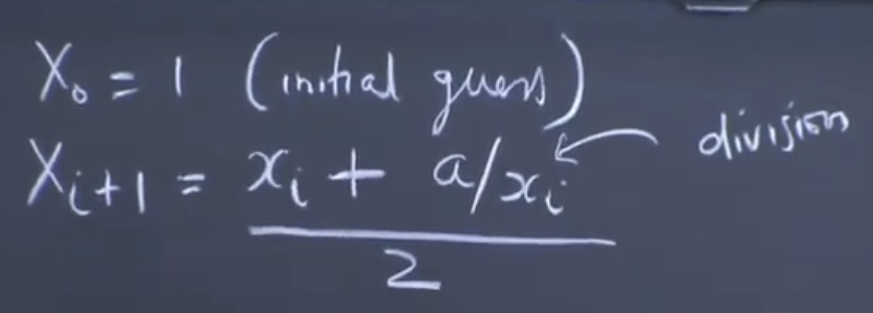 X₀ = 1 (initial guess)
Xᵢ₊₁ = xᵢ + a/xᵢ ← division
2